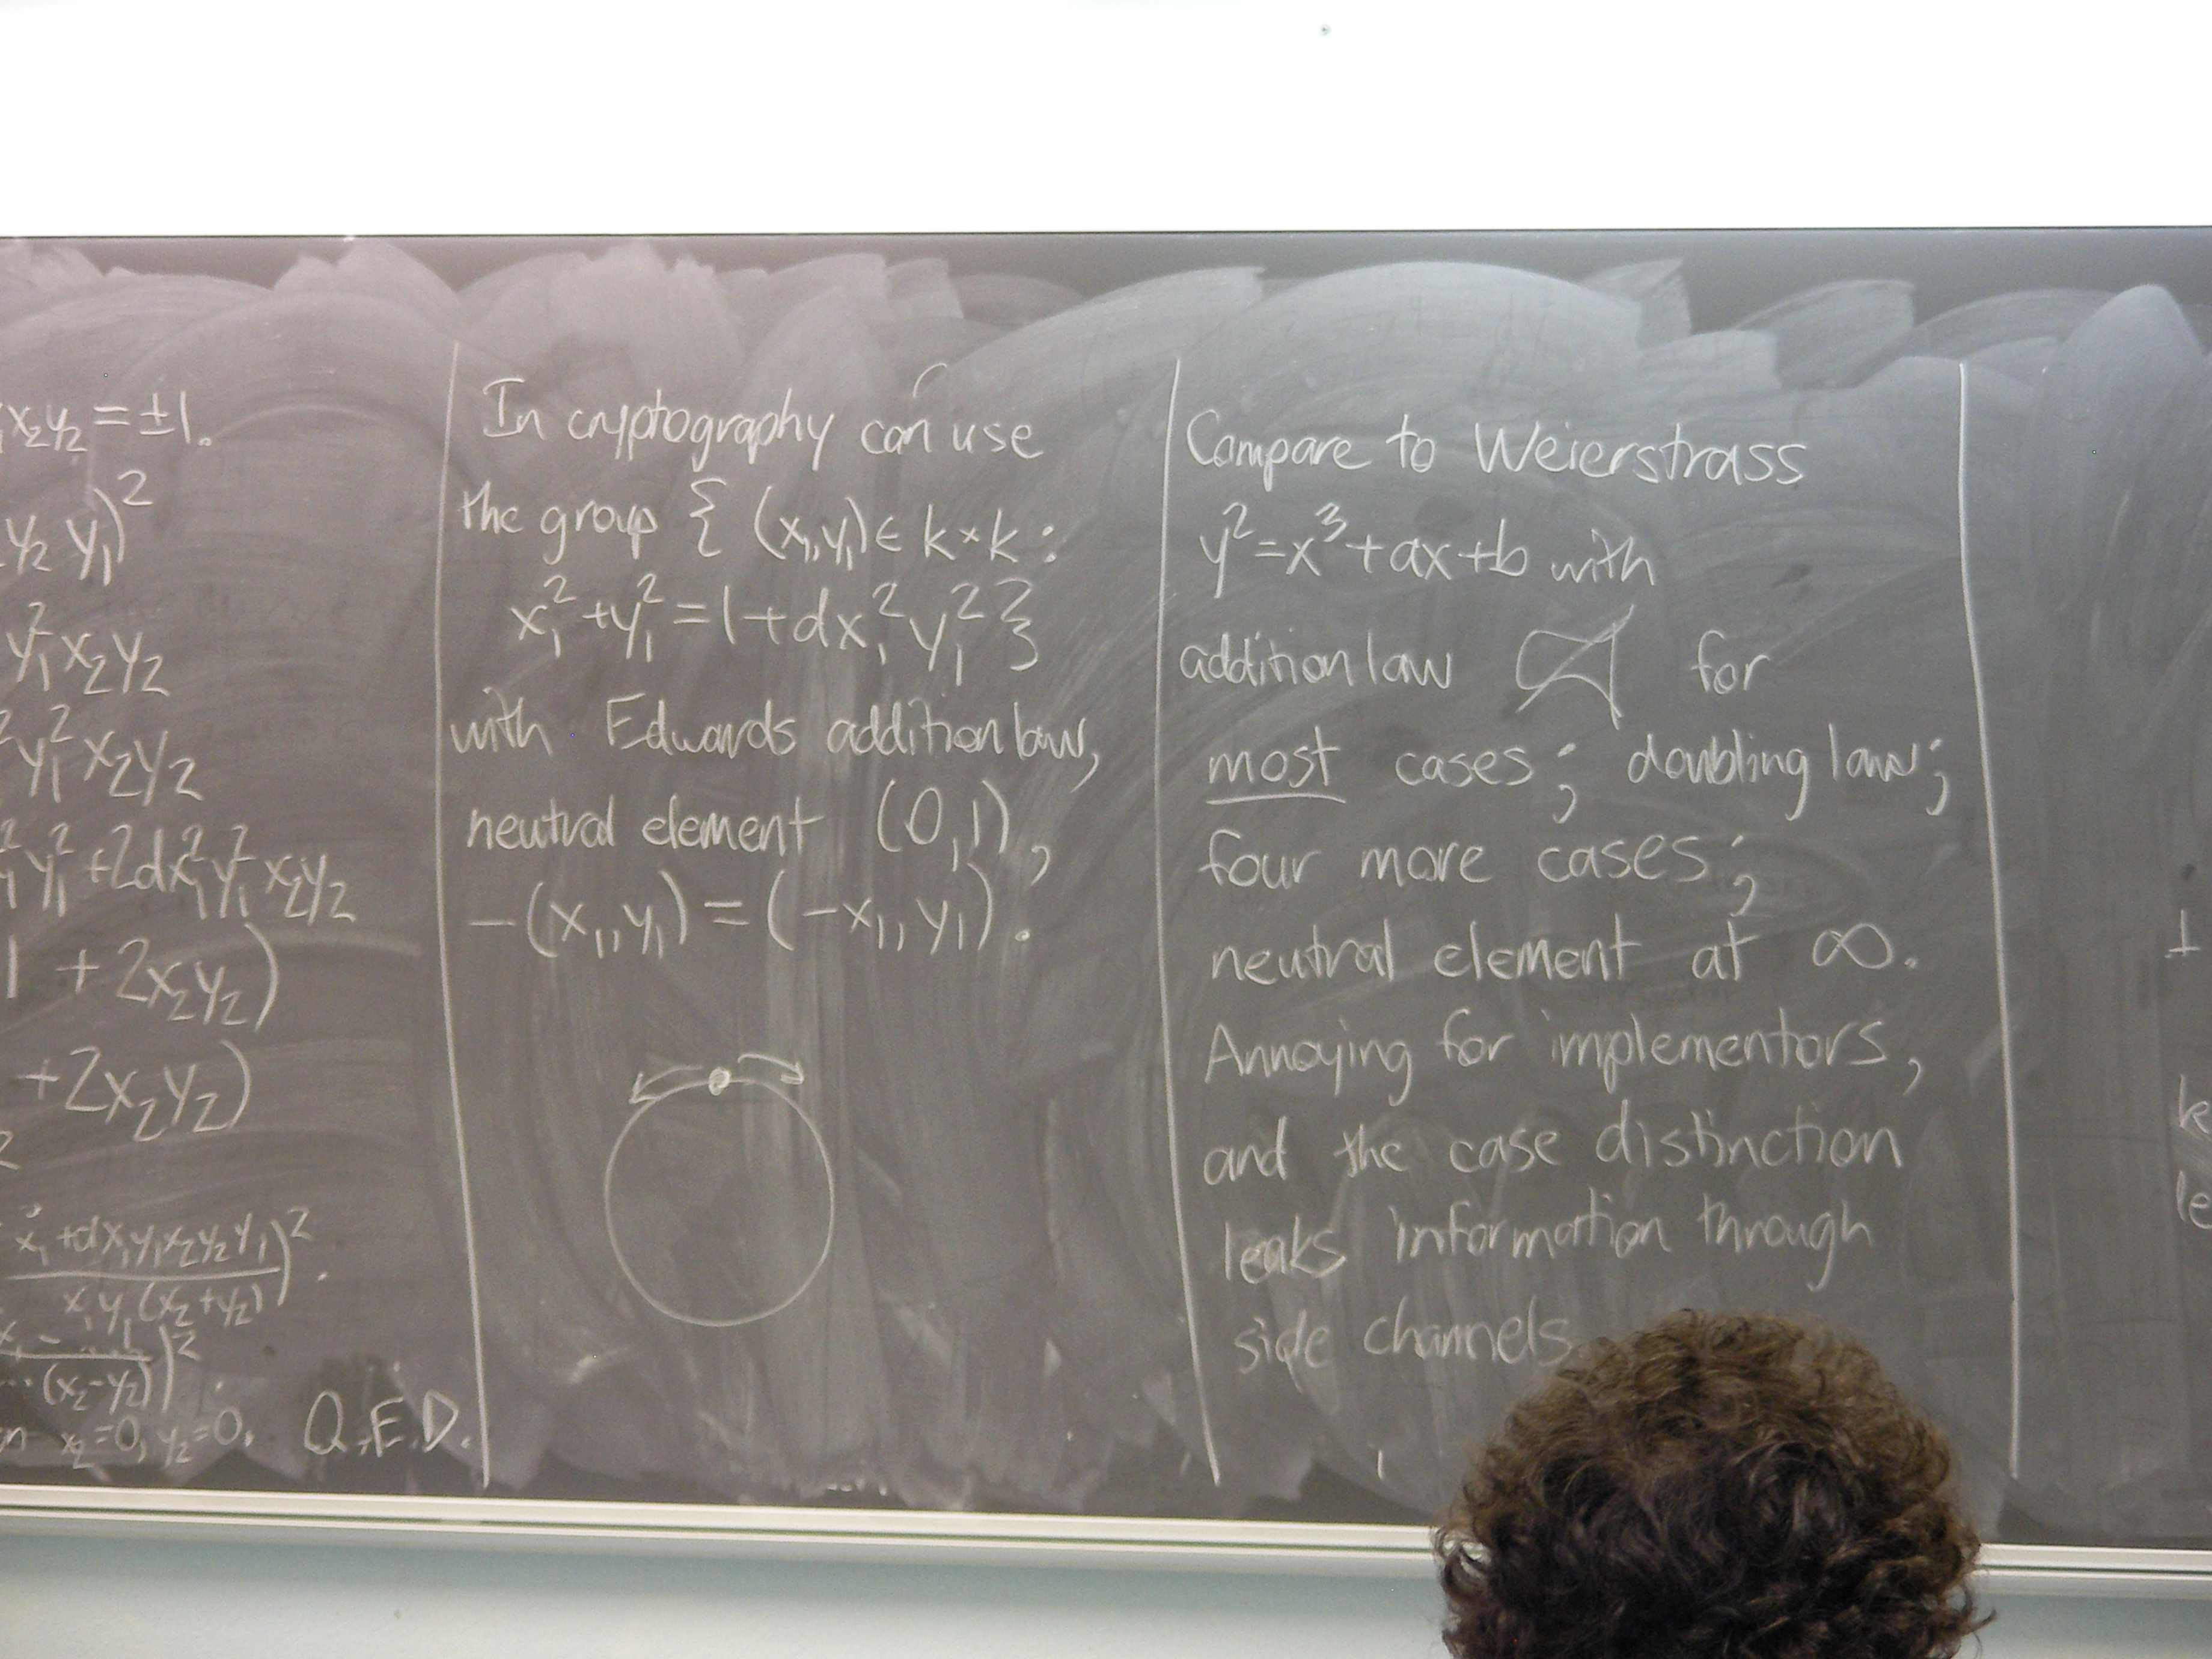 x₂y₂ = ±1.
y₂ y₁)²
y₁² x₂y₂
² y₁² x₂y₂
y₁² + 2dx₁²y₁² x₂y₂
1 + 2x₂y₂)
+ 2x₂y₂)
2
x₁ + dx₁y₁x₂y₂y₁)²
x₁y₁(x₂+y₂)
)²
...(x₂-y₂)
x₂=0, y₂=0. Q.E.D.
In cryptography can use
the group { (x₁,y₁) ∈ k×k :
x₁² + y₁² = 1 + dx₁² y₁² }
with Edwards addition law,
neutral element (0,1),
-(x₁,y₁) = (-x₁, y₁).
Compare to Weierstrass
y² = x³ + ax + b with
addition law for
most cases; doubling law;
four more cases;
neutral element at ∞.
Annoying for implementors,
and the case distinction
leaks information through
side channels
±
k
le